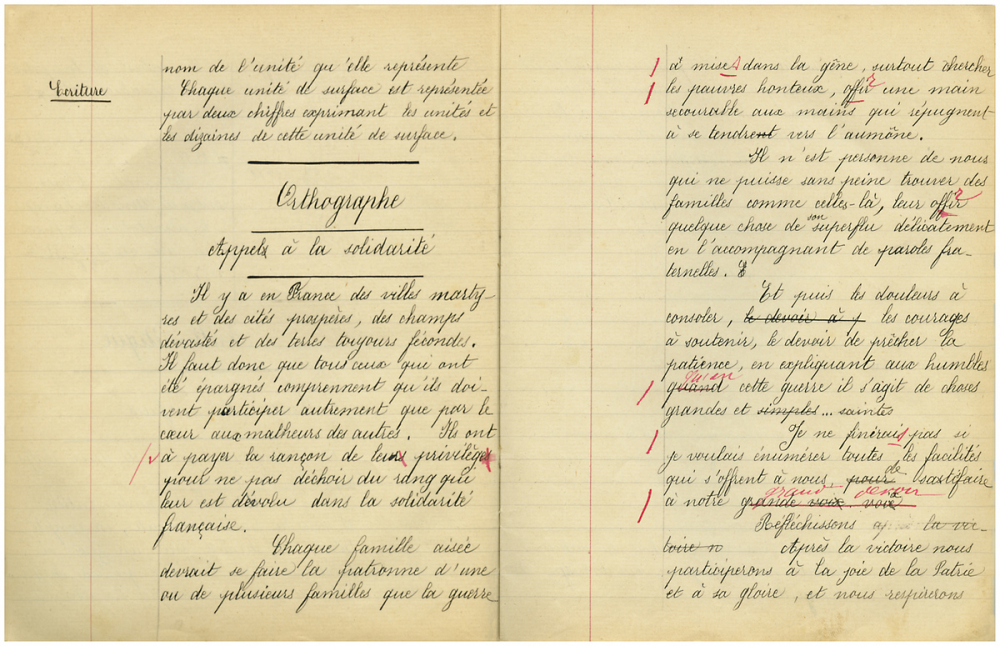 nom de l'unité qu'elle représente
Ecriture
Chaque unité de surface est représentée
par deux chiffres exprimant les unités et
les dizaines de cette unité de surface.
Orthographe
Appel à la solidarité
Il y a en France des villes marty-
res et des cités prospères, des champs
dévastés et des terres toujours fécondes.
Il faut donc que tous ceux qui ont
été épargnés comprennent qu'ils doi-
vent participer autrement que par le
cœur aux malheurs des autres. Ils ont
à payer la rançon de leur privilège
pour ne pas déchoir du rang qui
leur est dévolu dans la solidarité
française.
Chaque famille aisée
devrait se faire la patronne d'une
ou de plusieurs familles que la guerre
a mises dans la gêne, surtout chercher
les pauvres honteux, offir r une main
secourable aux mains qui répugnent
à se tendrent vers l'aumône.
Il n'est personne de nous
qui ne puisse sans peine trouver des
familles comme celles-là, leur offir r
quelque chose de son superflu délicatement
en l'accompagnant de paroles fra-
ternelles.
Et puis les douleurs à
consoler, le devoir à y les courages
à soutenir, le devoir de prêcher la
patience, en expliquant aux humbles
qu'en
quand cette guerre il s'agit de choses
grandes et simples... saintes
Je ne finirais pas si
je voulais énumérer toutes les facilités
qui s'offrent à nous pour de sastifaire
grand devoir
à notre grande voix. voix
Réfléchissons après la vic-
toire n Après la victoire nous
participerons à la joie de la Patrie
et à sa gloire, et nous respirerons